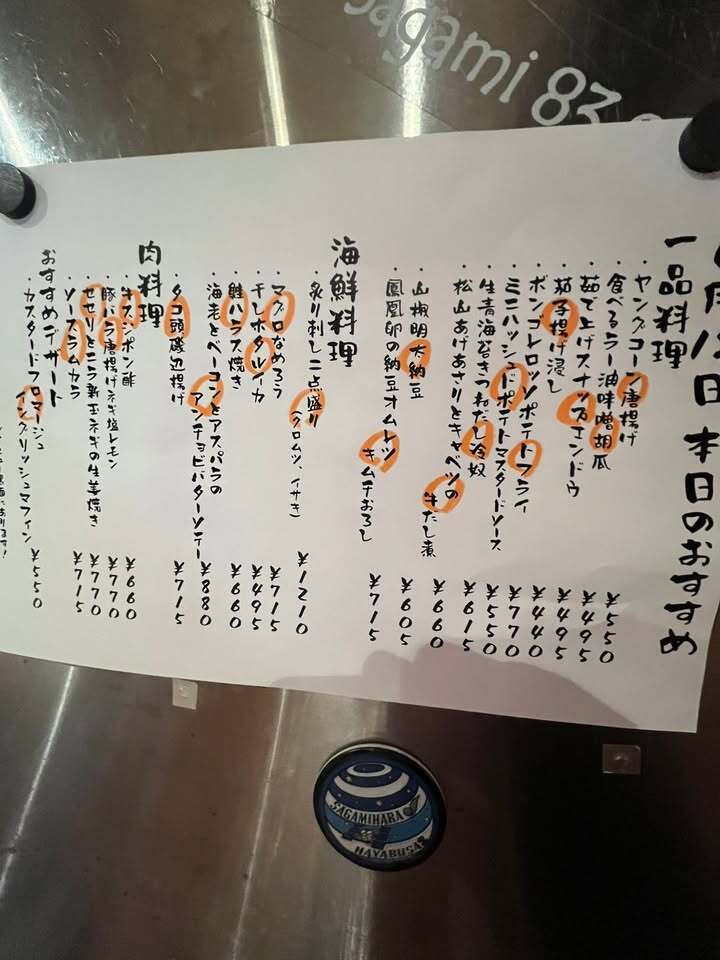 sagami 83
日 本日のおすすめ
一品料理
・ヤングコーン唐揚げ ¥550
・食べるラー油味噌胡瓜 ¥495
・茹で上げスナップエンドウ ¥495
・茄子揚げ浸し ¥440
・ボンゴレロッソポテトフライ ¥770
・ミニハッシュドポテトマスタードソース ¥550
・生青海苔きつねだし冷奴 ¥615
・松山あげあさりとキャベツの
牛だし煮 ¥660
・山椒明太納豆 ¥605
・鳳凰卵の納豆オムレツ
キムチおろし ¥715
海鮮料理
・炙り刺し二点盛り
(クロムツ、イサキ) ¥1210
・マグロなめろう ¥715
・干しホタルイカ ¥495
・鮭ハラス焼き ¥660
・海老とベーコンとアスパラの
アンチョビバターソテー ¥880
・タコ頭磯辺揚げ ¥715
肉料理
・牛スジポン酢 ¥660
・豚バラ唐揚げネギ塩レモン ¥770
・セセリとニラ新玉ネギの生姜焼き ¥770
・ソースラムカラ ¥715
おすすめデザート
・カスタードフロマージュ
イングリッシュマフィン ¥550
SAGAMIHARA
HAYABUSA2